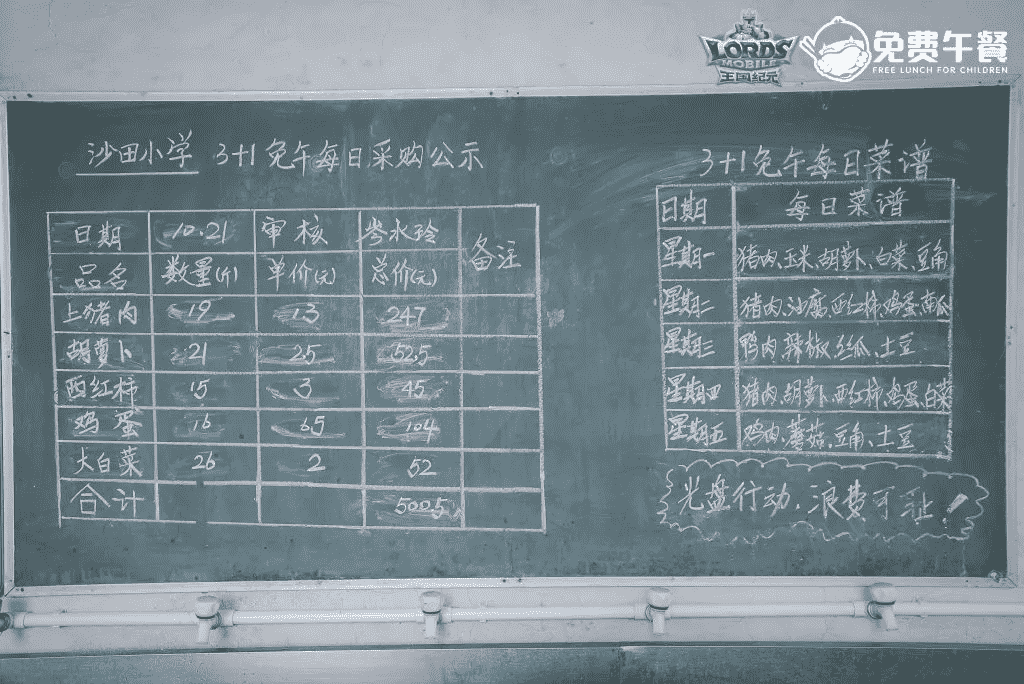 LORDS
MOBILE
王国纪元
免费午餐
FREE LUNCH FOR CHILDREN
沙田小学 3+1免午每日采购公示
日期 10.21 审核 岑永玲 备注
品名 数量(斤) 单价(元) 总价(元)
上猪肉 19 13 247
胡萝卜 21 2.5 52.5
西红柿 15 3 45
鸡蛋 16 6.5 104
大白菜 26 2 52
合计 500.5
3+1免午每日菜谱
日期 每日菜谱
星期一 猪肉、玉米、胡萝卜、白菜、豆角
星期二 猪肉、油腐、西红柿、鸡蛋、南瓜
星期三 鸭肉、辣椒、丝瓜、土豆
星期四 猪肉、胡萝卜、西红柿、鸡蛋、白菜
星期五 鸡肉、蘑菇、豆角、土豆
光盘行动,浪费可耻!